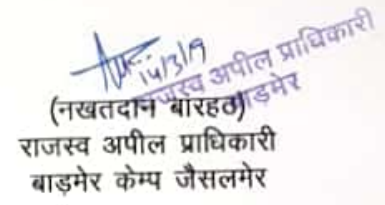 14/3/19
राजस्व अपील प्राधिकारी
बाड़मेर
(नखतदान बारहठ)
राजस्व अपील प्राधिकारी
बाड़मेर केम्प जैसलमेर